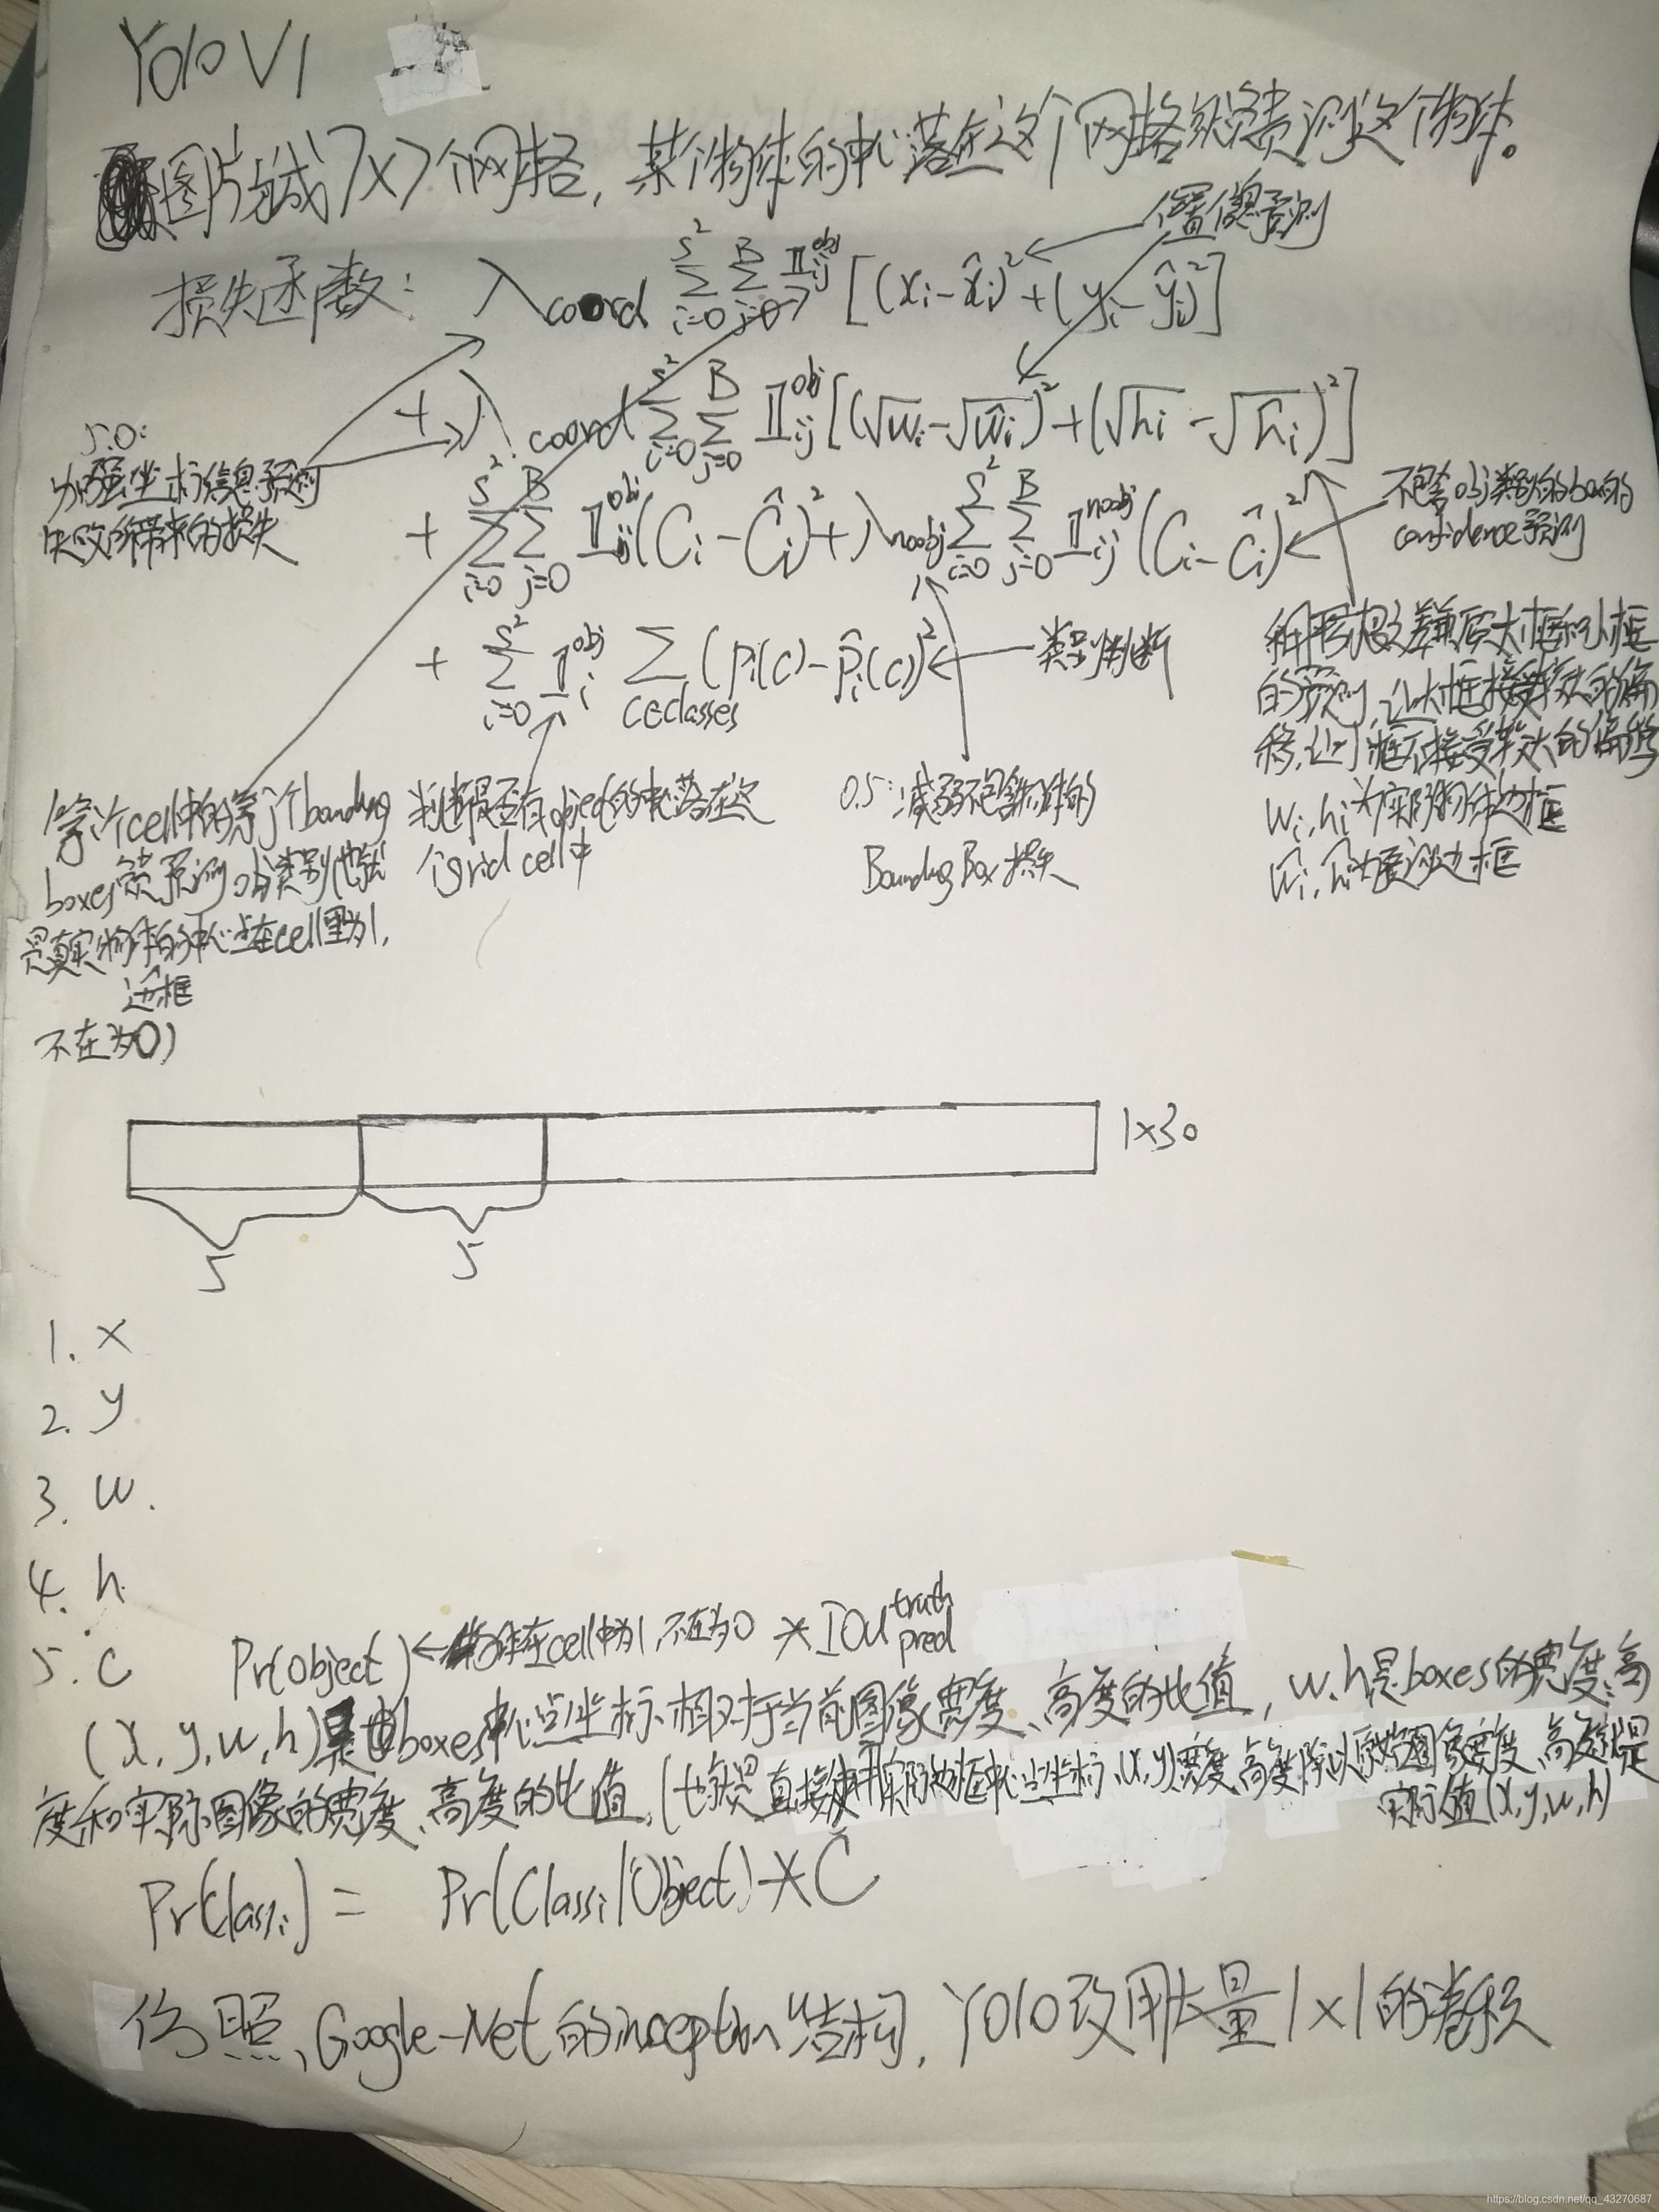 Yolo V1
图片分成7×7个网格，某个物体的中心落在这个网格就负责预测这个物体。
位置信息预测
损失函数： λcoord Σ(i=0, S²) Σ(j=0, B) 𝟙ij^obj [(xi-x̂i)²+(yi-ŷi)²]
+ λcoord Σ(i=0, S²) Σ(j=0, B) 𝟙ij^obj [(√wi-√ŵi)²+(√hi-√ĥi)²]
5.0:
加强坐标信息预测
失败所带来的损失
+ Σ(i=0, S²) Σ(j=0, B) 𝟙ij^obj (Ci-Ĉi)²+λnoobj Σ(i=0, S²) Σ(j=0, B) 𝟙ij^noobj (Ci-Ĉi)²
不包含obj类别的box的
confidence预测
+ Σ(i=0, S²) 𝟙i^obj Σ(c∈classes) (pi(c)-p̂i(c))²
类别判断
利用平方根之差兼顾大框和小框
的预测，让大框接受较大的偏
移，让小框不接受较大的偏移
wi, hi为实际物体边框
ŵi, ĥi为预测边框
(第i个cell中的第j个bounding
boxes负责预测obj类别也就
是真实物体的中心点在cell里为1,
边框
不在为0)
判断是否有object的中心落在这
个grid cell中
0.5:减弱不包含物体的
Bounding Box损失
1×30
5 5
1. x
2. y
3. w.
4. h
5. C Pr(object) ←物体在cell中为1,不在为0 * IOU^truth_pred
(x, y, w, h) boxes中心点坐标相对于当前图像宽度、高度的比值，w.h是boxes的宽度、高
度和实际图像的宽度、高度的比值,(也就是直接使用实际边框中心点坐标、宽度、高度除以原始图像宽度、高度就是
实际值(x,y,w,h)
Pr(Classi) = Pr(Classi|Object)*C
仿照Google-Net的inception结构，Yolo改用大量1×1的卷积
https://blog.csdn.net/qq_43270687